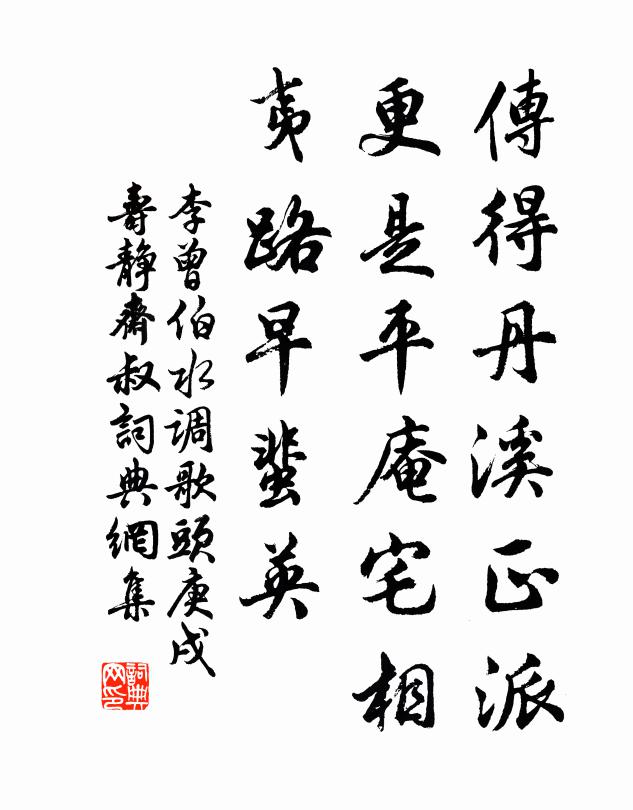 傳得丹溪正派
更是平庵宅相
夷路早蜚英
李曾伯水调歌頭庚戌
壽静齋叔詞典網集
詞典
网印